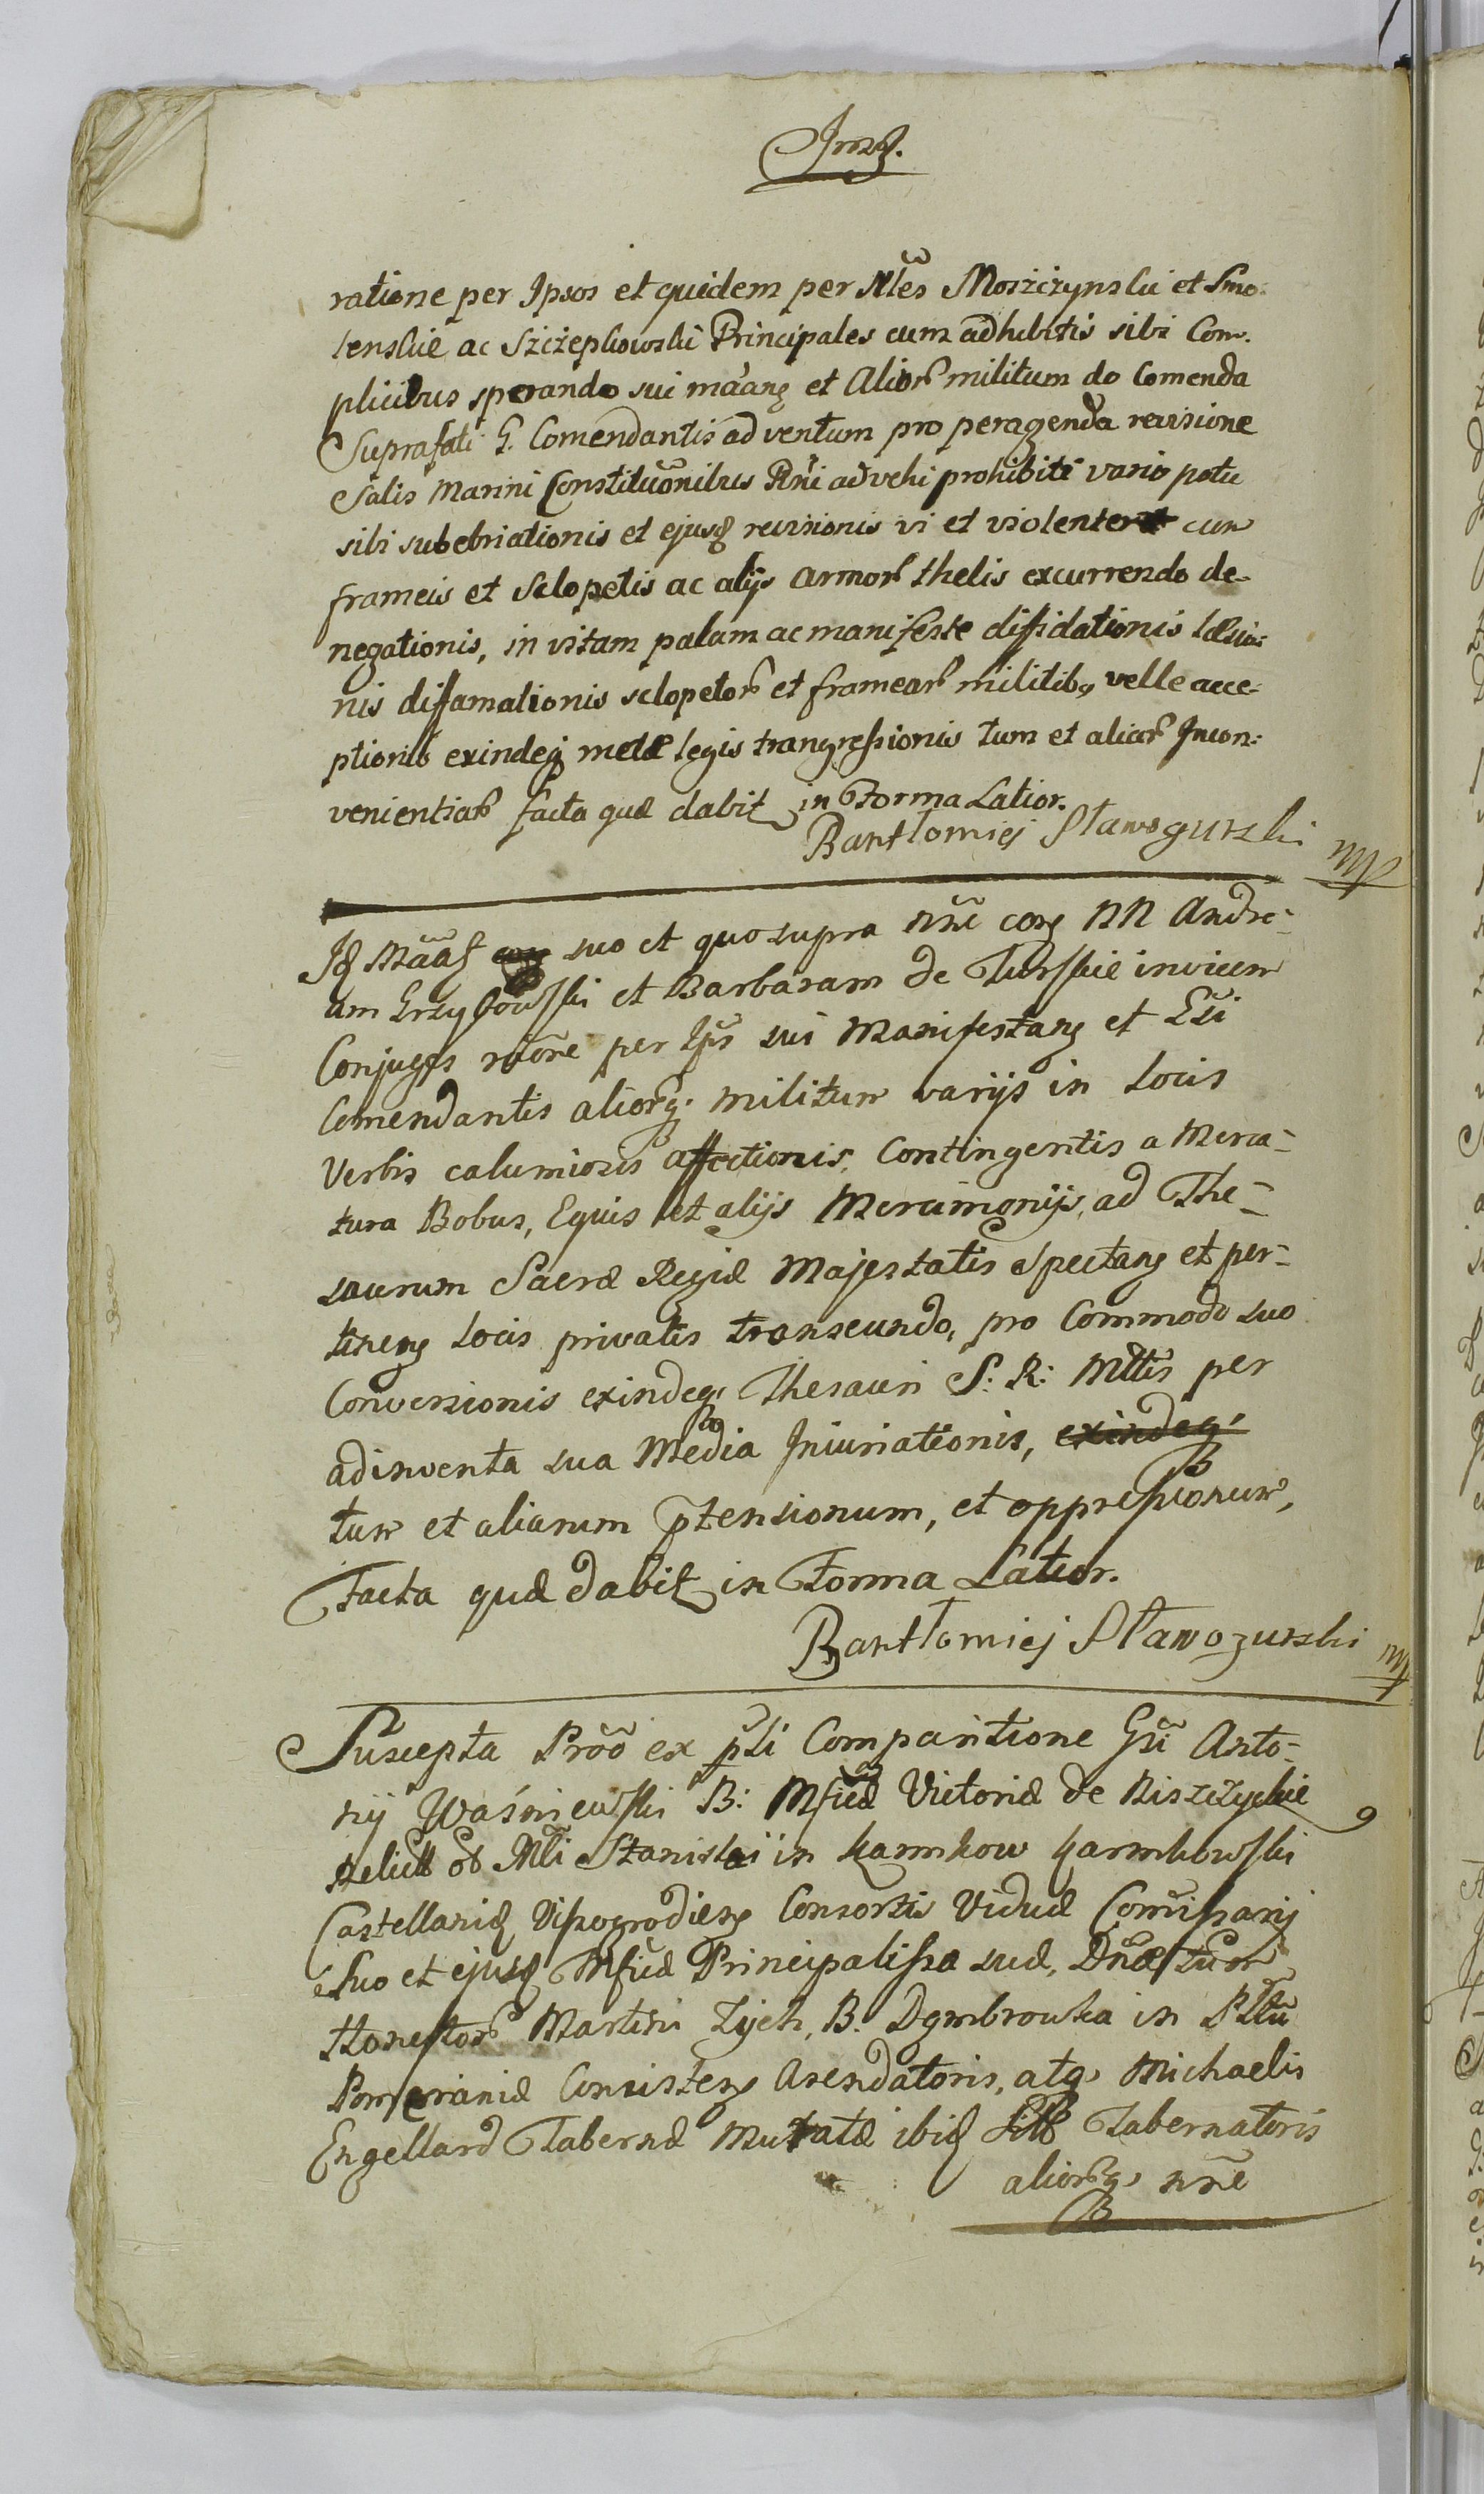 ratione per Ipsos et quidem per Nles Moszczynski et Smo-
lenskie ac Szczepkowski Principales cum adhibitis sibi Com-
plicibus sperando sui maang et Alior militum do Comenda
Suprafati G. Comendantis adventum pro peragenda revisione
Salis Marini Constituonibus Rni advehi prohibiti vario potu
sibi subebriationis et ejusq revisionis vi et violenter cum
frameis et Sclopetis ac alijs armor thelis excurrendo de-
negationis, in vitam palam ac manifeste diffidationis
nis diffamationis sclopetor et framear militibq velle acce-
ptionis exindeq metæ legis trangressionis tum et aliar Incon-
venientiar facta quæ dabit in Forma Latior.
Bartłomiej Sławogurski mp
Iq Maaq suo et quo supra nne cong NN Andre-
am Grzybowski et Barbaram de Turskie invicem
Conjuges raone per Ips sui Manifestang et Gsi
Comendantis aliorq militum varijs in Locis
Verbis calumiosis affectionis, Contingentis a Merca-
tura Bobus, Equis et alijs Mercimonijs, ad The-
saurum Sacræ Regiæ Majestatis Spectang et per-
tineng Locis privatis transeundo, pro Commodo suo
Conversionis exindeq Thesauri S: R: Mttis per
adinventa sua Media Iniuriationis, exindeq
tum et aliarum ptensionum, et oppressionum,
Facta quæ dabit in Forma Latior.
Bartłomiej Sławogurski mp
Suscepta Proo ex pti Comparitione Gsi Anto-
nij Waśniewski B: Mficæ Victoriæ de Riszczyckie
relictæ ob Mfi Stanislai in Karnkow Karnkowski
Castellaniq Visogrodieng Consortis Viduæ Comissarij
Suo et ejusq Mficæ Principalissa suæ, Dnæ tum
Honestor Martini Zych, B. Dąmbrowka in Pttu
Pomeraniæ Consisteng Arendatoris, atq Michaelis
Engellard Tabernæ Mutatæ ibiq Tabernatoris
aliorq nne